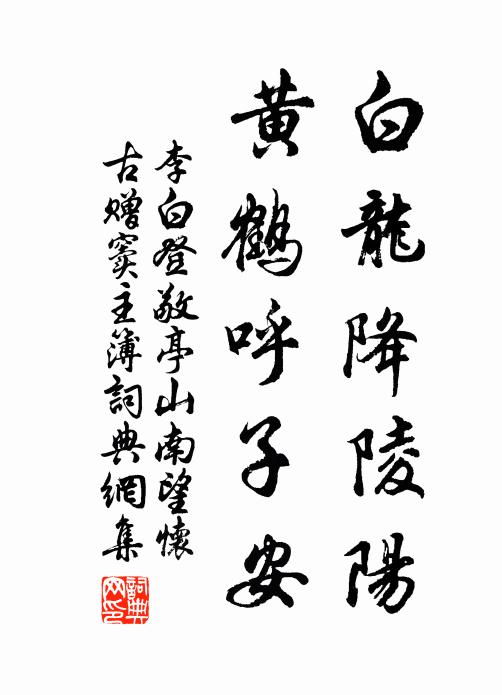 白龍降陵陽
黄鶴呼子安
李白登敬亭山南望懷
古贈竇主簿詞典網集
詞典
网印